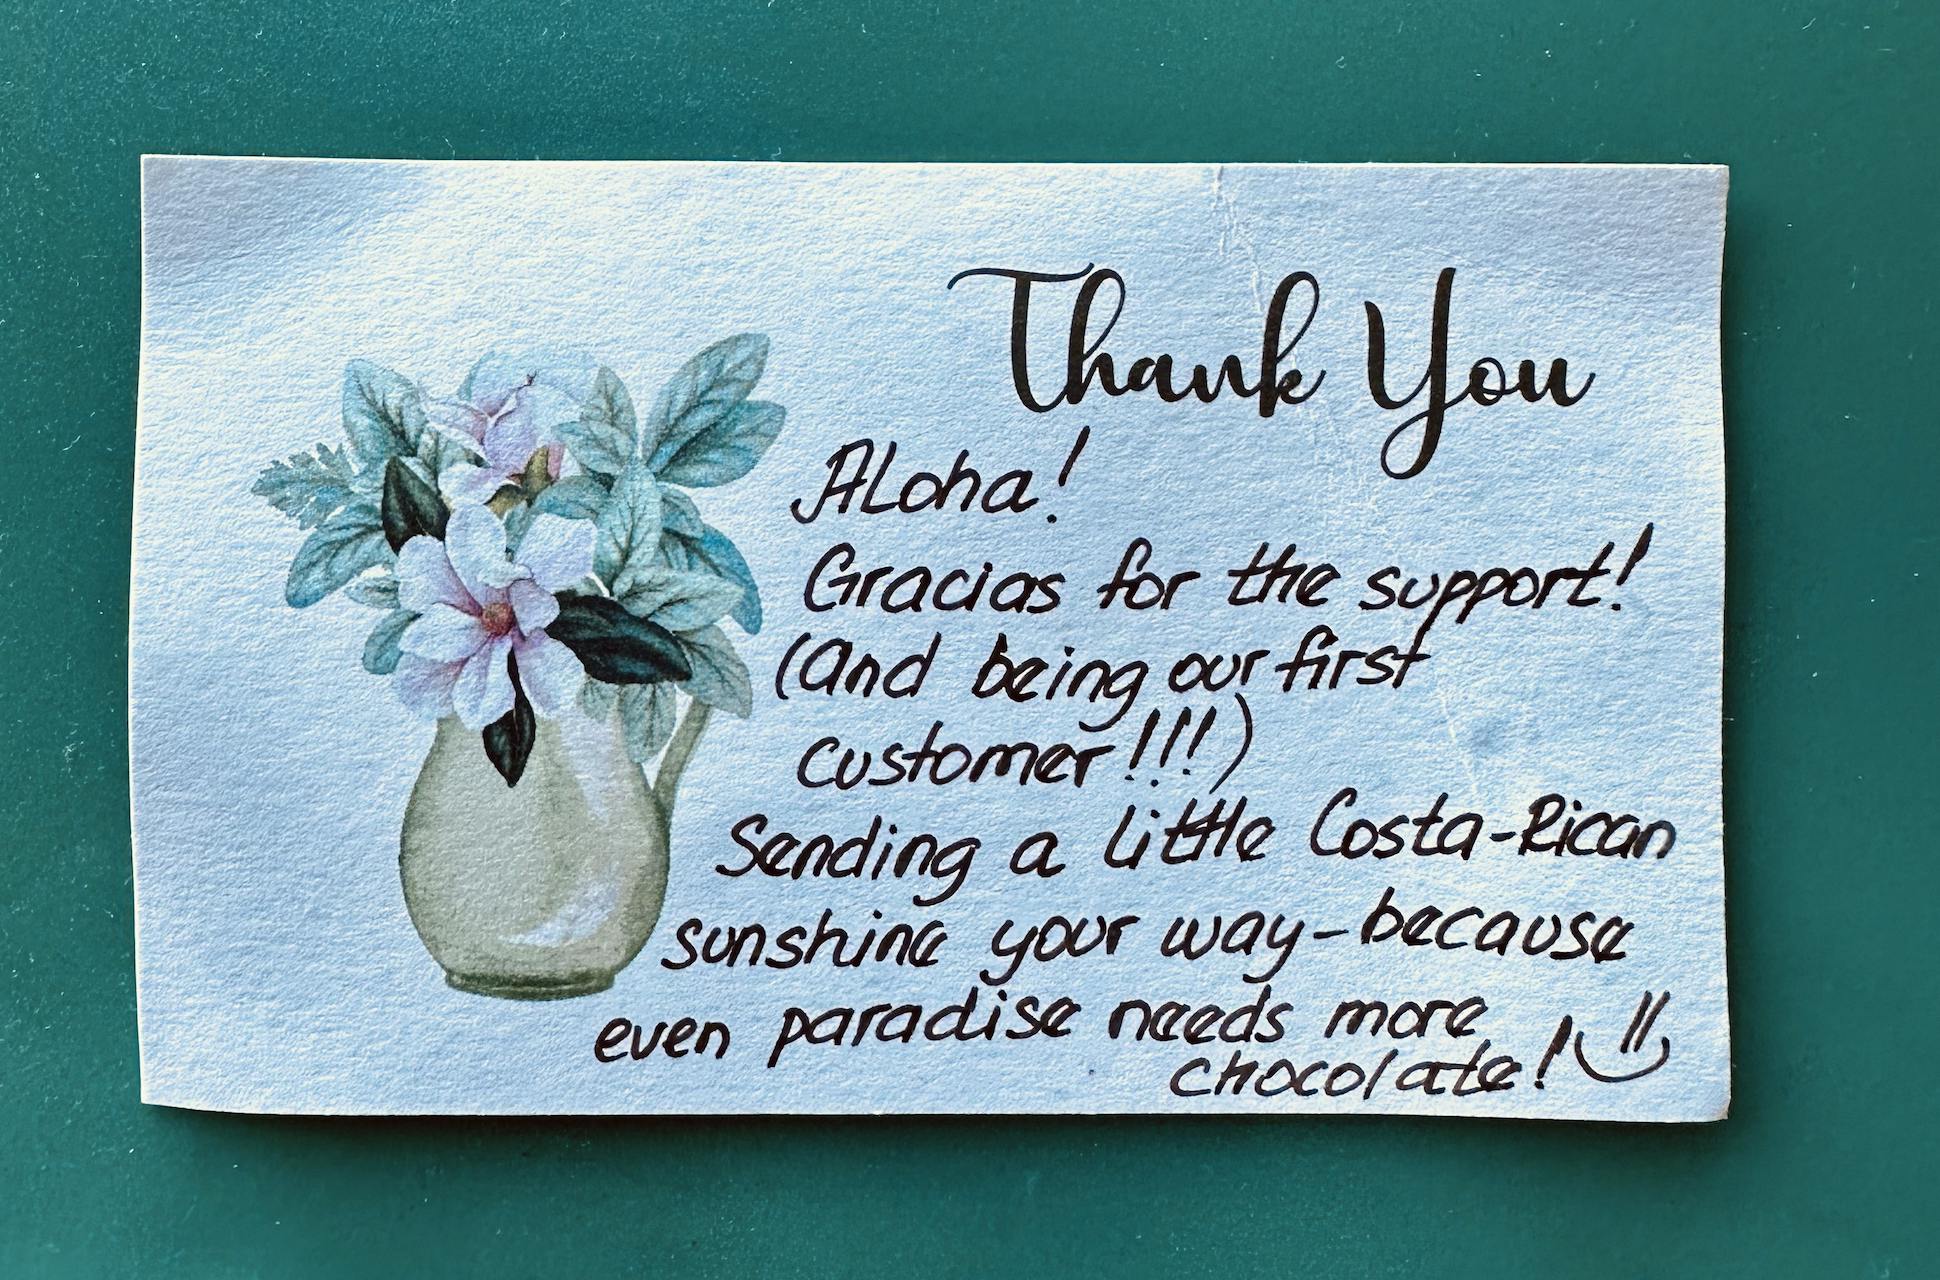 Thank You
Aloha!
Gracias for the support!
(And being our first
customer!!!)
Sending a little Costa-Rican
sunshine your way-because
even paradise needs more
chocolate!